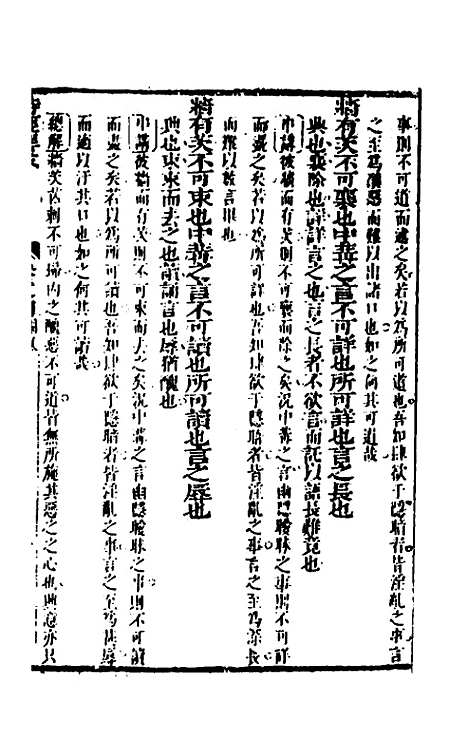 事則不可道而述之矣若以爲所可道也吾知肆欲于隱暗者皆淫亂之事言
之至爲醜惡而難以出諸口也如之何其可道哉
牆有茨不可襄也中冓之言不可詳也所可詳也言之長也
興也襄除也詳詳言之也言之長者不欲言而託以語長難竟也
中講彼牆而有茨則不可襄而除之矣況中冓之言幽隱曖昧之事則不可詳
而盡之矣若以爲所可詳也吾知肆欲于隱暗者皆淫亂之事言之至爲深長
而難以数言罪也
牆有茨不可束也中冓之言不可讀也所可讀也言之辱也
興也束束而去之也讀誦言也辱猶醜也
中講彼牆而有茨則不可束而去之矣況中冓之言幽隱曖昧之事則不可讀
而盡之矣若以爲所可讀也吾知肆欲于隱暗者皆淫亂之事言之至爲辱
而適以汙其口也如之何其可讀哉
總解牆茨舊刺不可掃內之醜惡不可道皆無所施其惡之之心也興意亦只